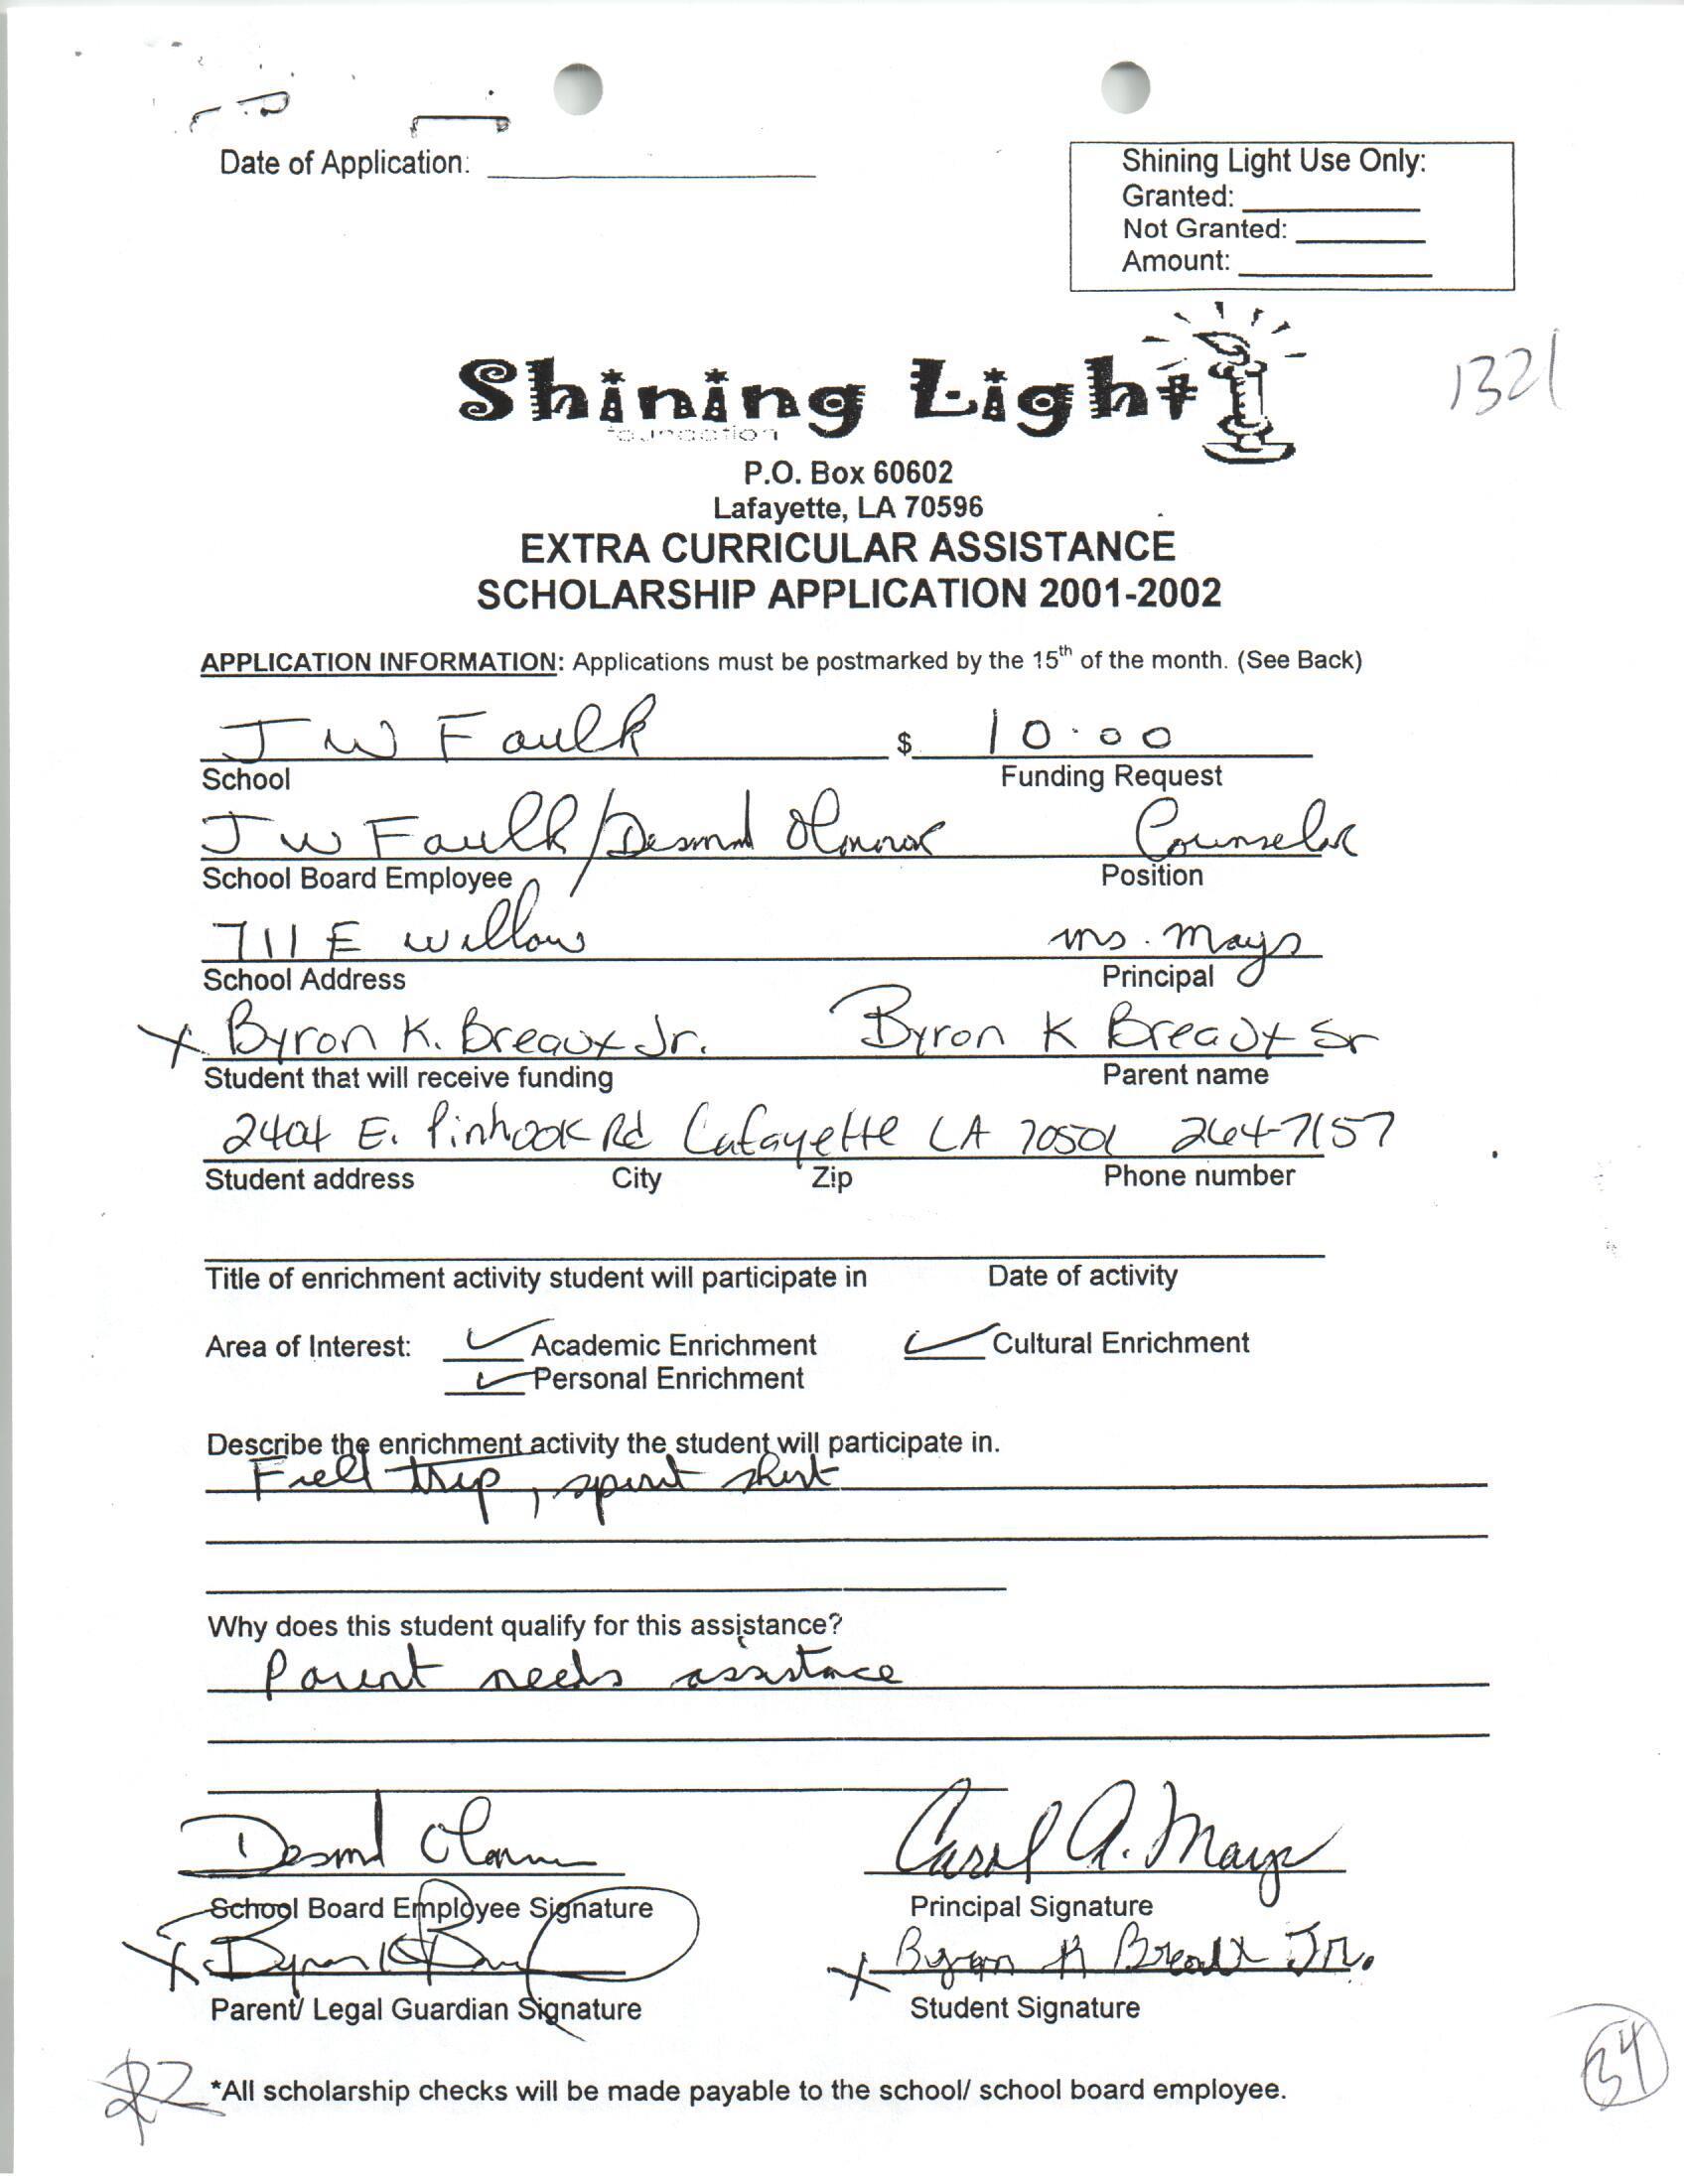 Date of Application:
Shining Light Use Only:
Granted:
Not Granted:
Amount:
1321
Shining Light
foundation
P.O. Box 60602
Lafayette, LA 70596
EXTRA CURRICULAR ASSISTANCE
SCHOLARSHIP APPLICATION 2001-2002
APPLICATION INFORMATION: Applications must be postmarked by the 15th of the month. (See Back)
J W Faulk $ 10.00
School Funding Request
J W Faulk/Desmond Counselor
School Board Employee Position
711 E Willow ms. Mays
School Address Principal
X Byron K. Breaux Jr. Byron K Breaux Sr
Student that will receive funding Parent name
2404 E. Pinhook Rd Lafayette LA 70501 264-7157
Student address City Zip Phone number
Title of enrichment activity student will participate in Date of activity
Area of Interest: Academic Enrichment Cultural Enrichment
Personal Enrichment
Describe the enrichment activity the student will participate in.
Field trip, spirit shirt
Why does this student qualify for this assistance?
Parent needs assistance
Desmond Carol A. Mays
School Board Employee Signature Principal Signature
X Byron K X Byron K Breaux Jr.
Parent/ Legal Guardian Signature Student Signature
*All scholarship checks will be made payable to the school/ school board employee.
34